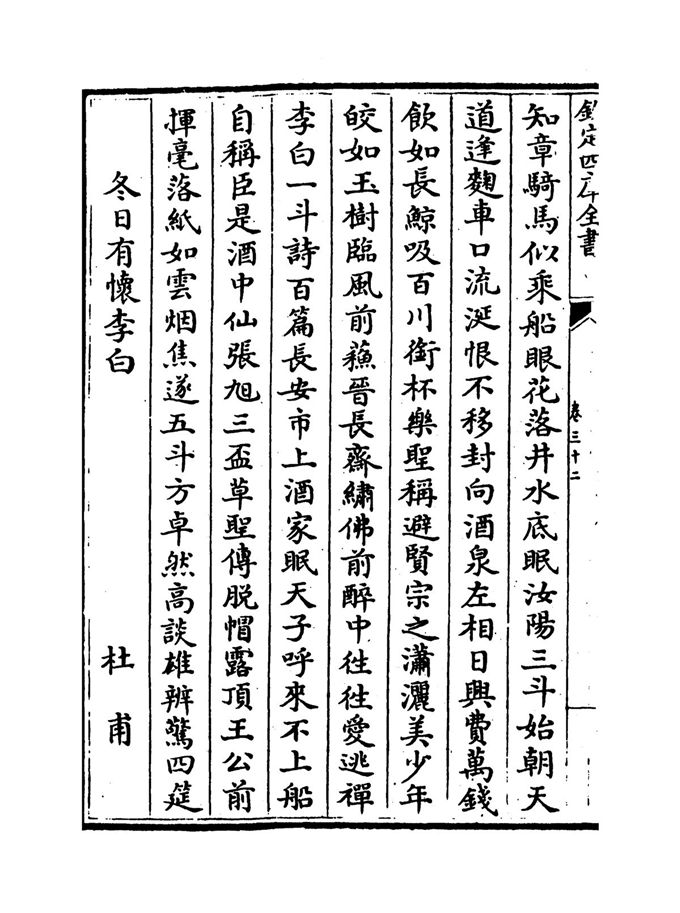 欽定四庫全書
卷三十二
知章騎馬似乘船眼花落井水底眠汝陽三斗始朝天
道逢麴車口流涎恨不移封向酒泉左相日興費萬錢
飲如長鯨吸百川銜杯樂聖稱避賢宗之瀟灑美少年
皎如玉樹臨風前蘓晉長齋繡佛前醉中往往愛逃禪
李白一斗詩百篇長安市上酒家眠天子呼來不上船
自稱臣是酒中仙張旭三盃草聖傳脱帽露頂王公前
揮毫落紙如雲烟焦遂五斗方卓然高談雄辨驚四筵
冬日有懷李白　杜甫